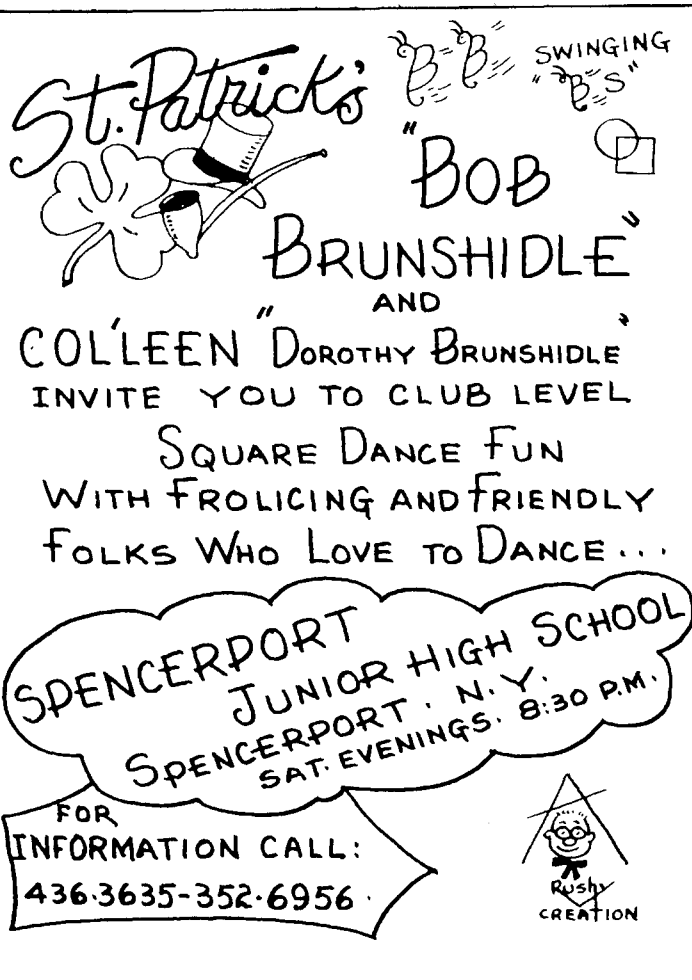 St. Patrick's
B B SWINGING
"B'S"
"BOB
BRUNSHIDLE"
AND
COL'LEEN "DOROTHY BRUNSHIDLE"
INVITE YOU TO CLUB LEVEL
SQUARE DANCE FUN
WITH FROLICING AND FRIENDLY
FOLKS WHO LOVE TO DANCE...
SPENCERPORT
JUNIOR HIGH SCHOOL
SPENCERPORT. N.Y.
SAT. EVENINGS. 8:30 P.M.
FOR
INFORMATION CALL:
436.3635-352.6956.
Rushy
CREATION